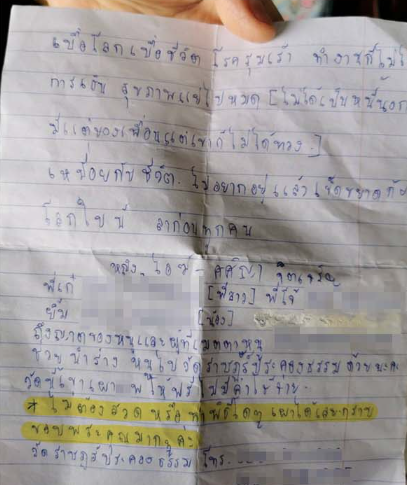 เบื่อโลกเบื่อชีวิต โรคซึมเศร้า ทำงานก็ไม่ไ
การเงิน สุขภาพแย่ไปหมด [ไม่ได้เป็นหนี้นอก
มีแต่ของเพื่อนแต่เขาก็ไม่ได้ทวง.]
เหนื่อยกับชีวิต. ไม่อยากอยู่แล้วเข็ดขยาดกับ
โลกใบนี้ ลาก่อนทุกคน
หญิง
พี่เก๋ [พี่สาว] พี่โจ้
ยิ้ม [น้อง]
ถึงญาติของหนูและผู้ที่เมตตาหนู
ช่วยนำร่าง หนูไปวัดราษฎร์ประคองธรรม ด้วยนะคะ
วัดนี้เขาเผาศพให้ฟรี ไม่มีค่าใช้จ่าย.
* ไม่ต้องสวด หรือ เผาได้เลย กราบ
ขอบพระคุณมากๆ ค่ะ
วัดราษฎร์ประคองธรรม โทร.